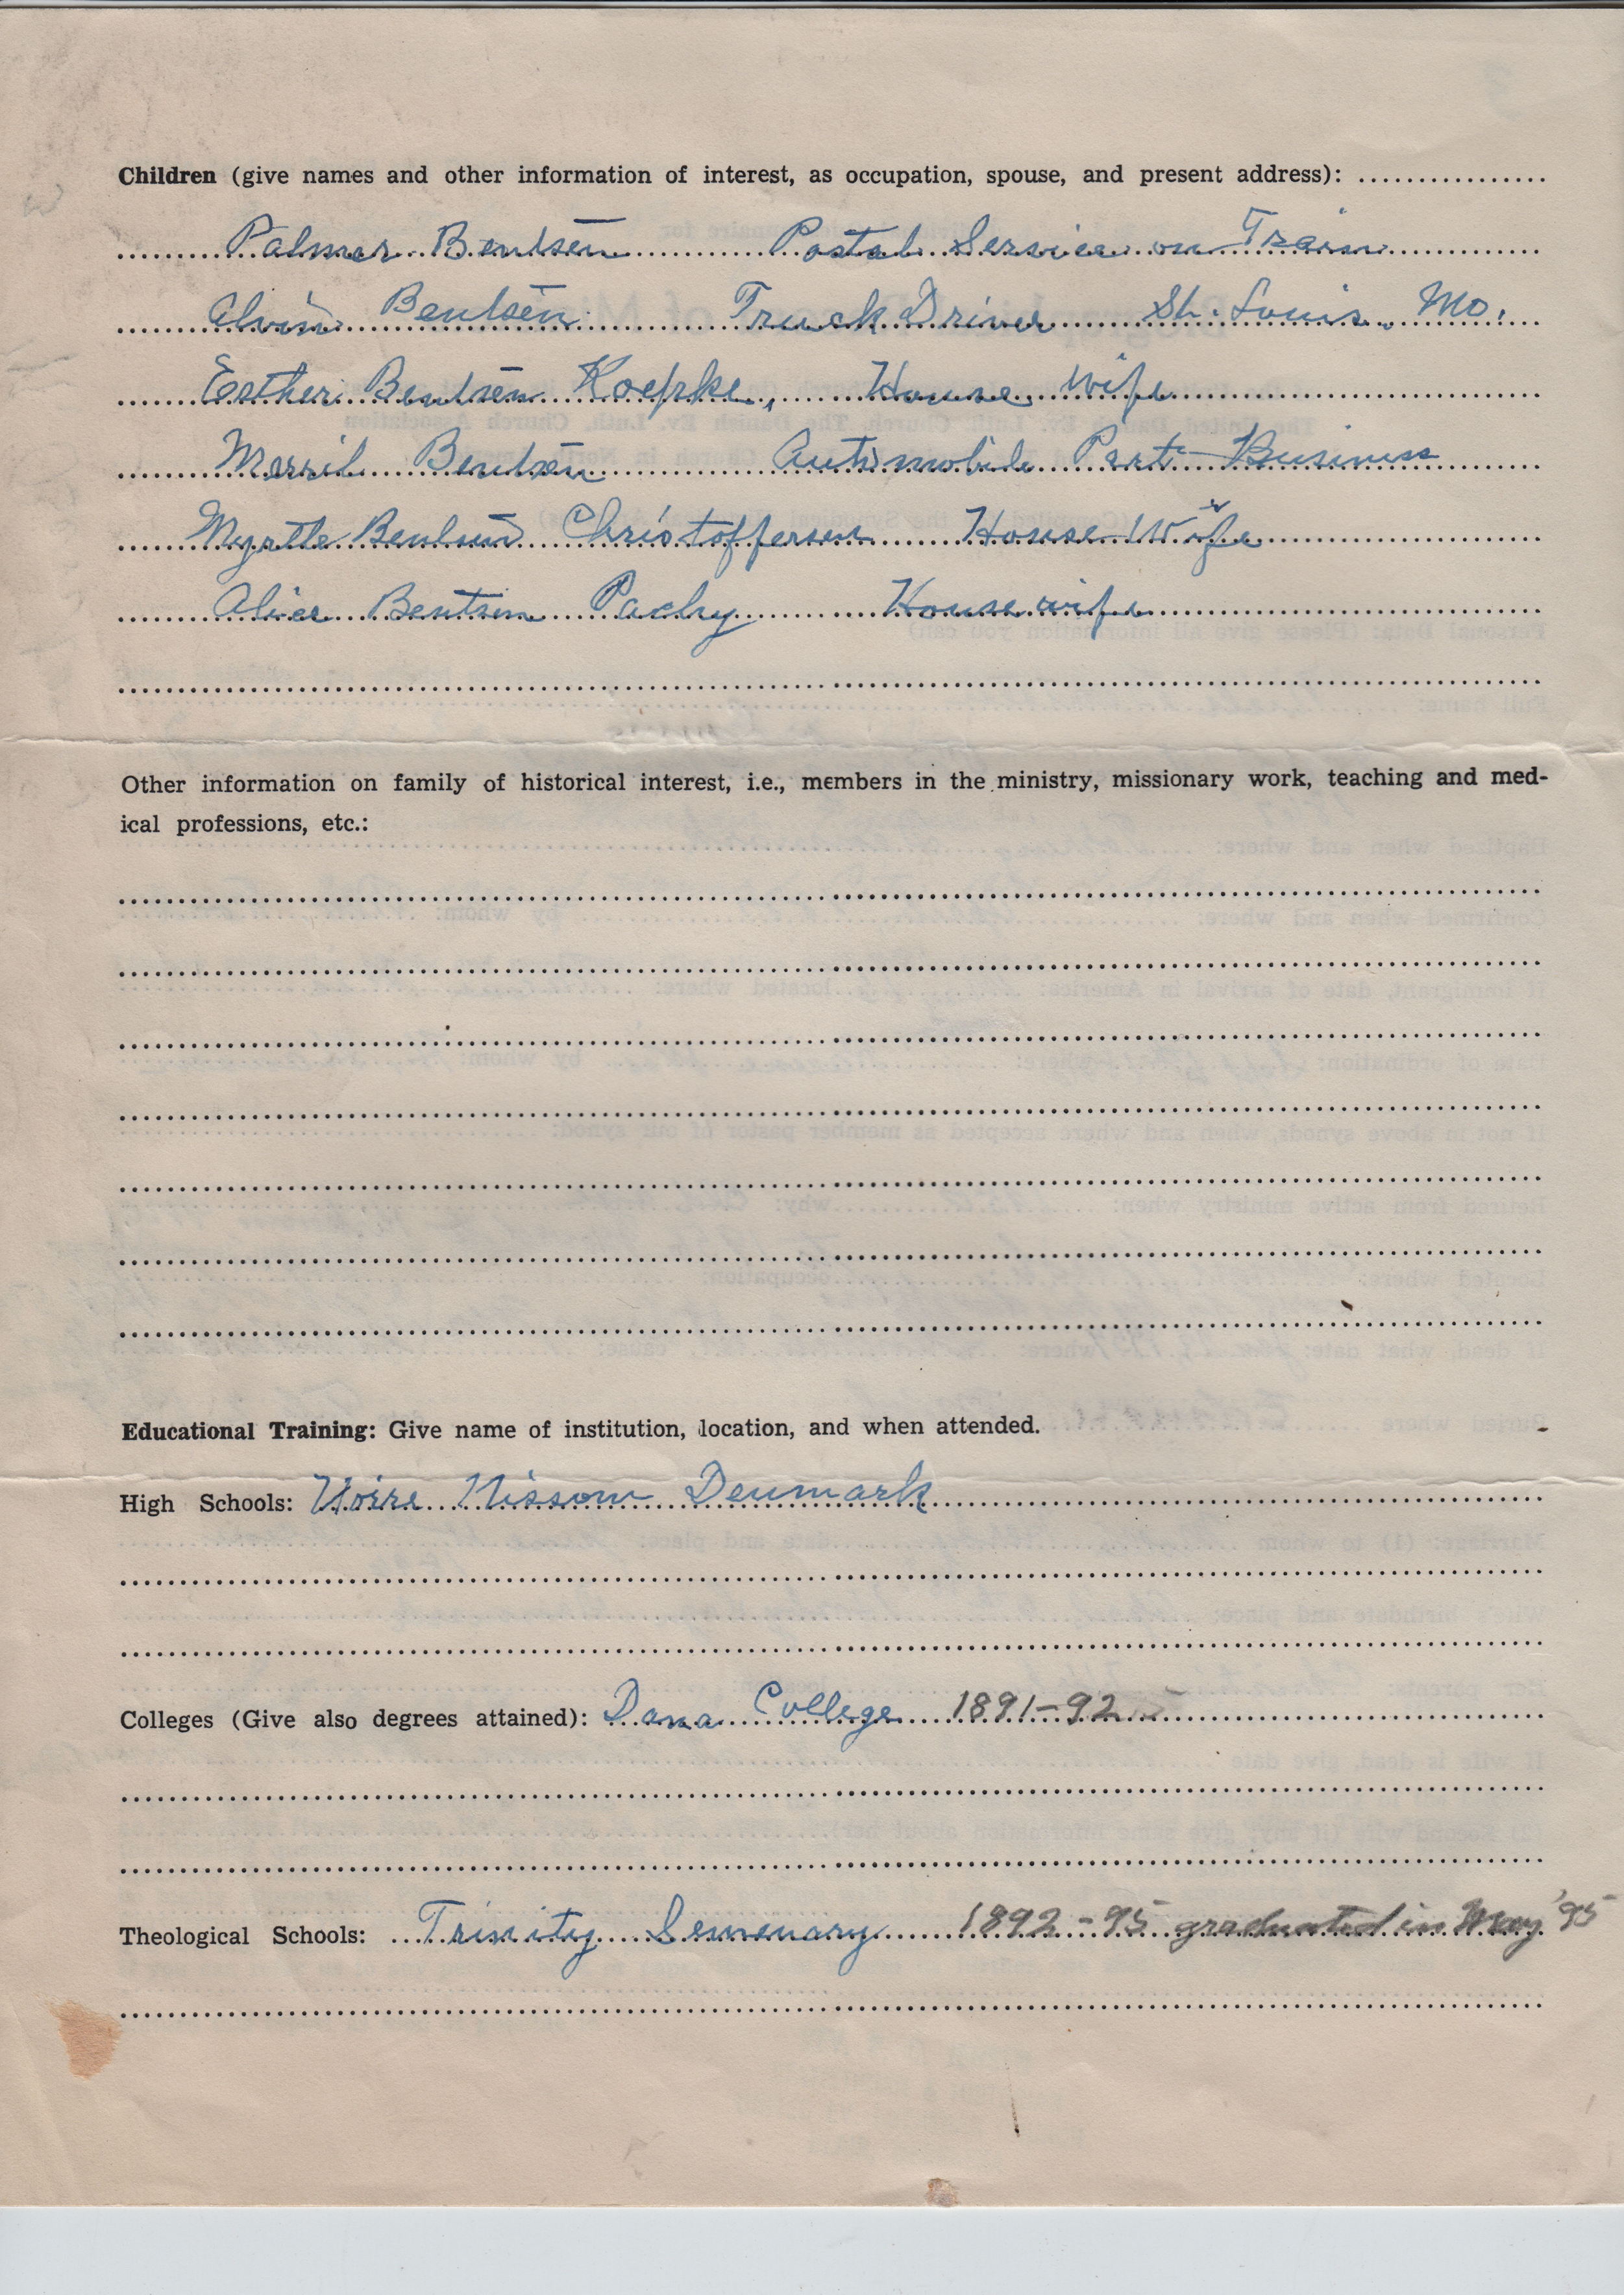 Children (give names and other information of interest, as occupation, spouse, and present address):
Palmer Bentsen Postal Service on Train
Alvin Bentsen Truck Driver St. Louis, Mo.
Esther Bentsen Koepke, House wife
Merril Bentsen Automobile Part Business
Myrtle Bentsen Christoffersen House Wife
Alice Bentsen Housewife
Other information on family of historical interest, i.e., members in the ministry, missionary work, teaching and med-
ical professions, etc.:
Educational Training: Give name of institution, location, and when attended.
High Schools: Nissom Denmark
Colleges (Give also degrees attained): Dana College 1891-92
Theological Schools: Trinity Semenary 1892-95 graduated in May '95